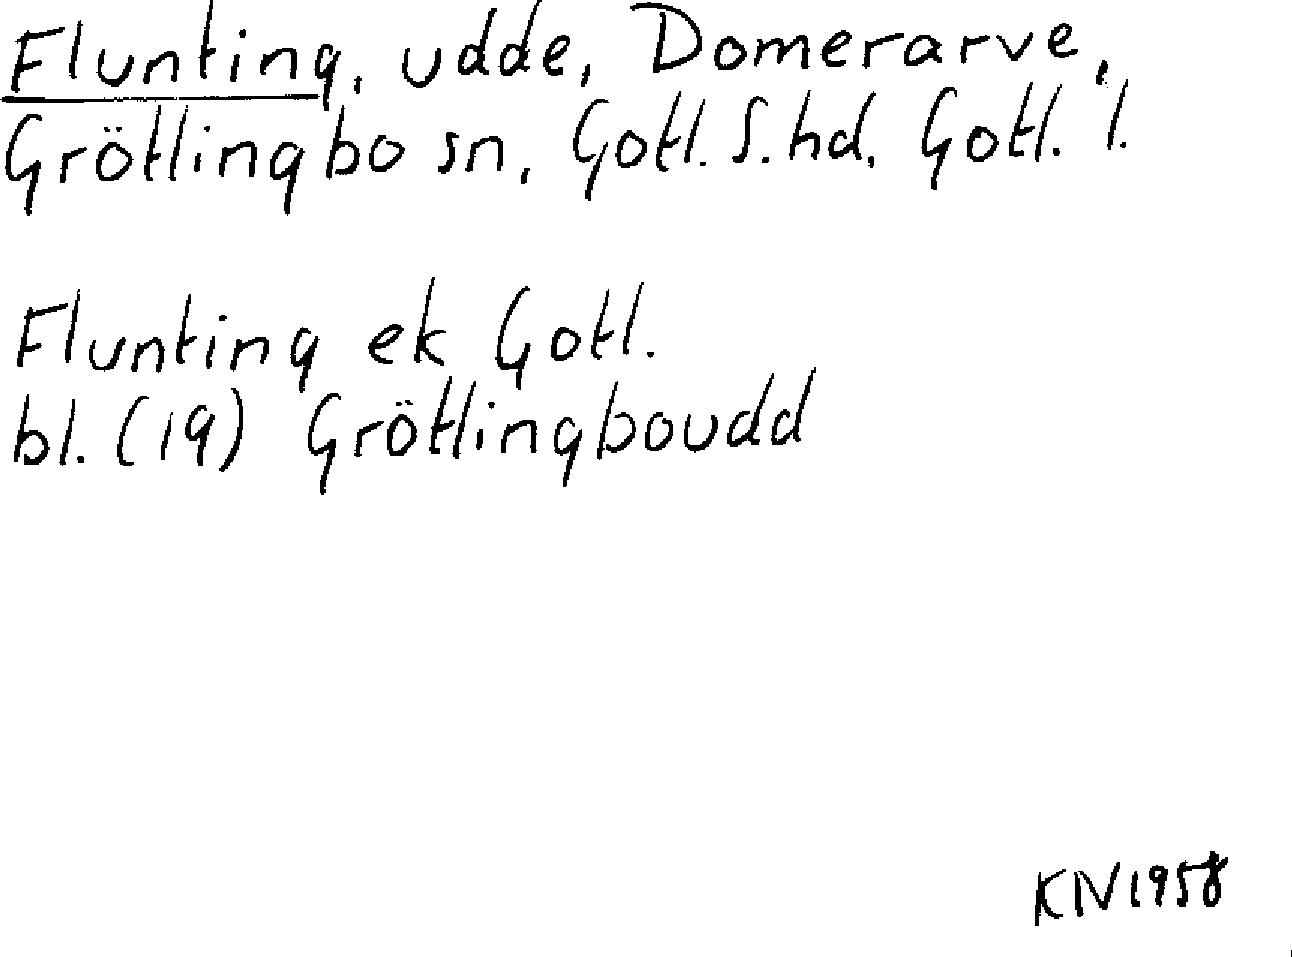 Flunting, udde, Domerarve,
Grötlingbo sn, Gotl. S. hd, Gotl. l.
Flunting ek Gotl.
bl. (19) Grötlingboudd
KN 1958